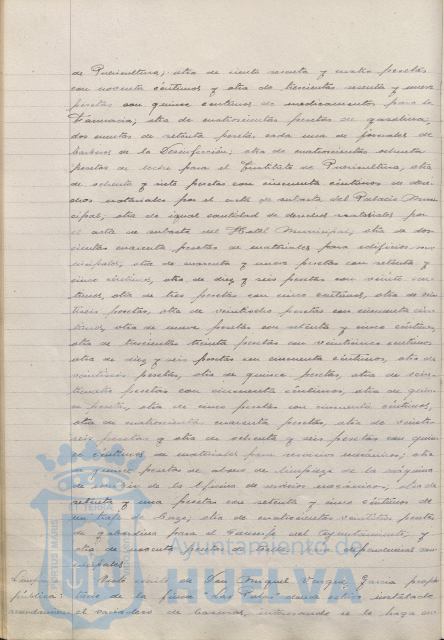 de Puericultura; otra de ciento sesenta y cuatro pesetas
con noventa céntimos y otra de trescientas sesenta y nueve
pesetas con quince céntimos de medicamentos para la
Farmacia; otra de cuatrocientas pesetas de gasolina,
dos cuentas de setenta pesetas cada una de jornales de
barberos de la Desinfección; otra de cuatrocientas ochenta
pesetas de leche para el Instituto de Puericultura, otra
de ochenta y siete pesetas con cincuenta céntimos de dere-
chos notariales por el acta de subasta del Palacio Muni-
cipal; otra de igual cantidad de derechos notariales por
el acta de subasta del Hotel Municipal; otra de dos
cientas cuarenta pesetas de materiales para edificios mu-
nicipales, otra de cuarenta y nueve pesetas con setenta y
cinco céntimos, otra de diez y seis pesetas con veinte cén-
timos, otra de tres pesetas con cinco céntimos, otra de
pesetas, otra de veintiocho pesetas con cincuenta cén-
timos, otra de nueve pesetas con setenta y cinco céntimos,
otra de trescientas treinta pesetas con veinticinco céntimos
otra de diez y seis pesetas con cincuenta céntimos, otra de
pesetas, otra de quince pesetas, otra de
pesetas con cincuenta céntimos, otra de
pesetas, otra de cinco pesetas con cincuenta céntimos,
otra de cuatrocientas cuarenta pesetas, otra de veinti-
seis pesetas y otra de ochenta y seis pesetas con quin-
ce céntimos de materiales para servicio mecánico; otra
de quince pesetas de abono de limpieza de la máquina
de escribir de la Oficina de servicios mecánicos, otra de
setenta y una pesetas con setenta y cinco céntimos de
un traje de; otra de cuatrocientas pesetas
de gabardina para el del Ayuntamiento, y
otra de noventa pesetas de dependencias mu-
nicipales.
Limpieza Visto escrito de Don Miguel Vargas García propie-
pública: tario de la finca donde estuvo instalado
el vaciadero de basuras, interesando se le haga
Ayuntamiento de
HUELVA